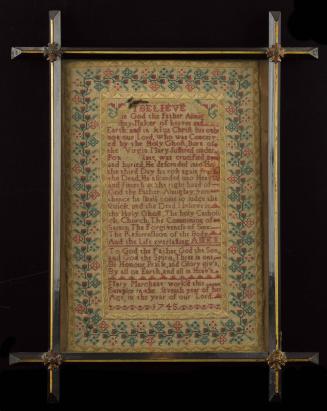 I BELIEVE
in God the Father Almig
hty Maker of heaven and
Earth and in Jesus Christ his only
our Lord, Who was Concei
ed by the Holy Ghost, Born of
the Virgin Mary, Suffered under
Pon was crucified
and buried, He descended into
the third Day he rose again from
the Dead, He ascended into Heav
and sitteth at the right hand of
God the Father Almighty, from
thence he shall come to judge the
Quick and the Dead, I believe in
the Holy Ghost, The holy Cathol
Church, The Communion of
Saints, The Forgiveness of Sins
The Resurrection of the Body
And the Life everlasting AMEN
To God the Father, God the Son
and God the Spirit, Three in one
Be Honour Praise and Glory giv'n
By all on Earth, and all in Heav'n
Mary Marchant work'd this
Sampler in the Seventh year of her
Age in the year of our Lord
1745